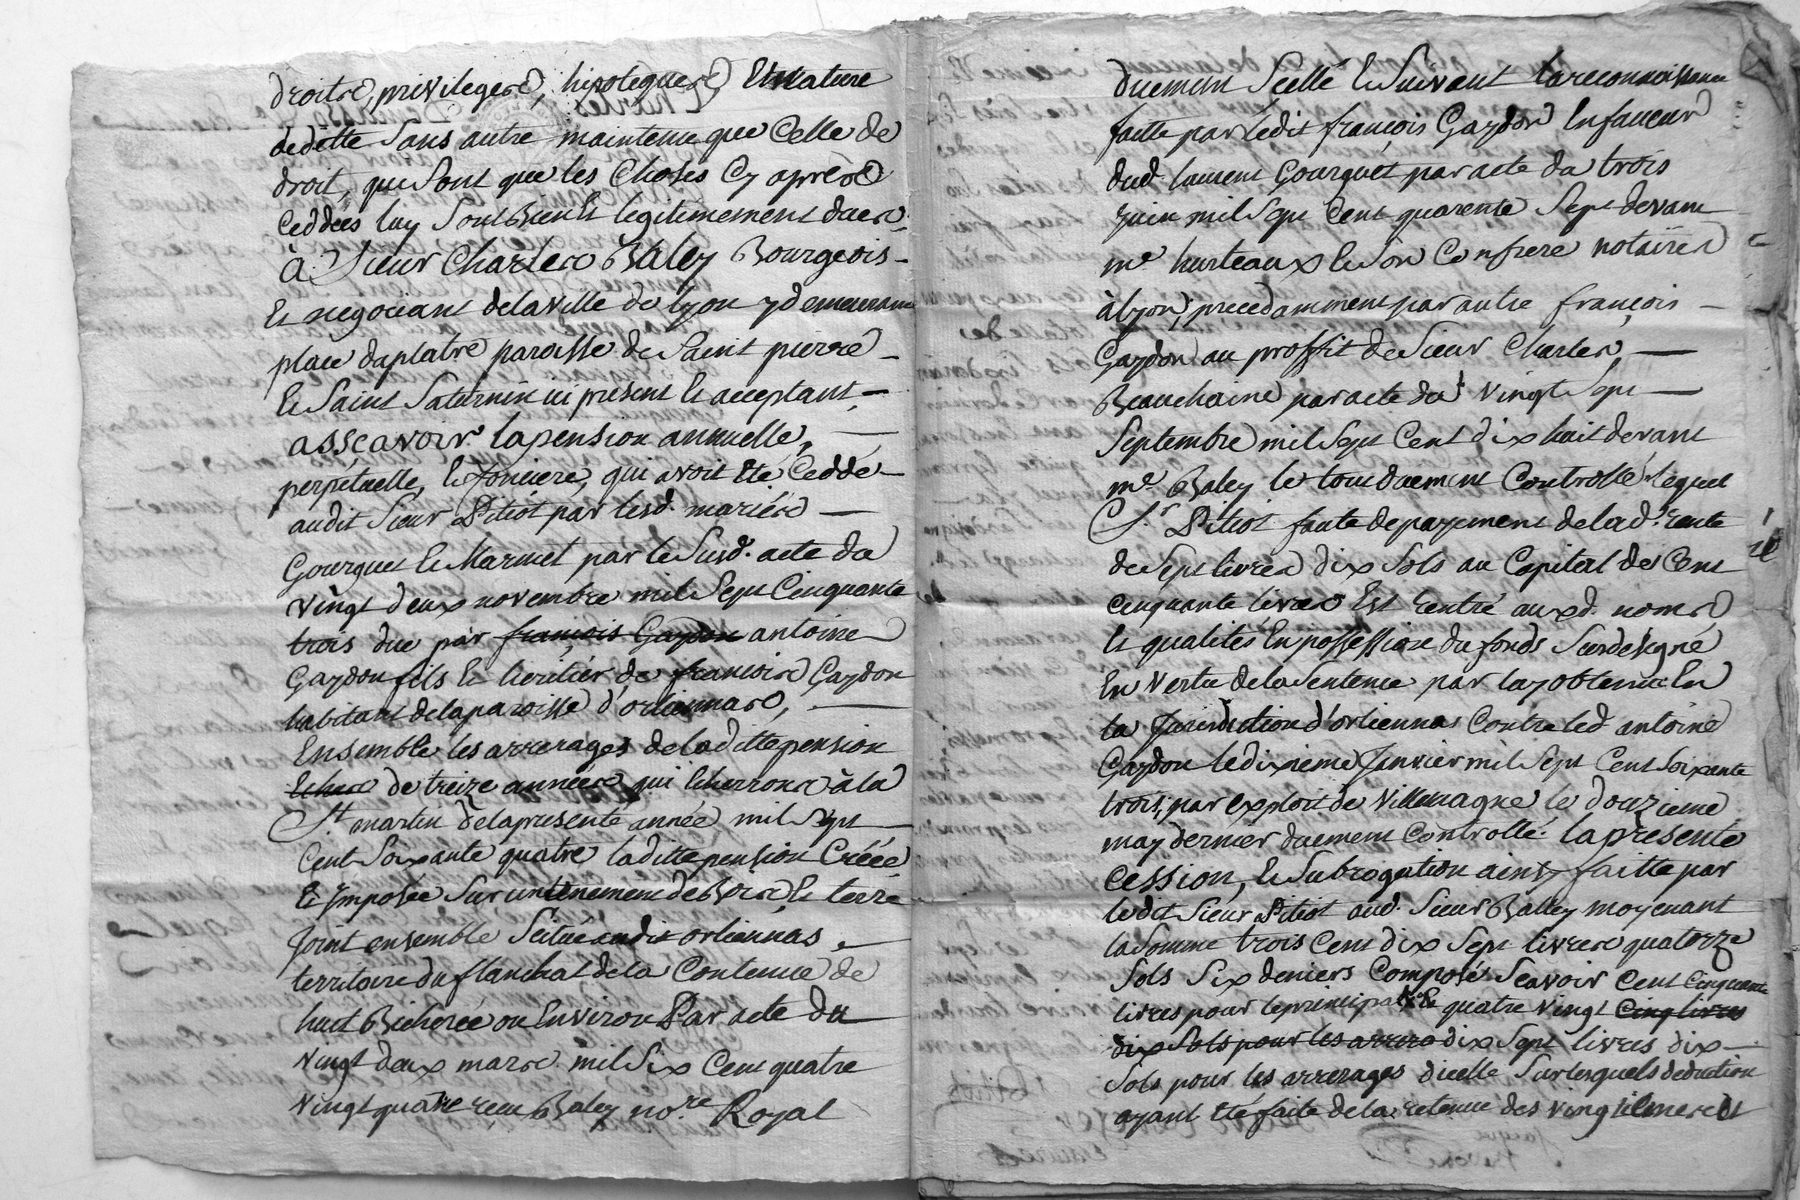 droits, privileges, hipoteques, Et nature
dedette sans autre maintenue que Celle de
droit, que sont que les Choses Cy apres
Ceddées luy sont Bien Et légitimement dues,
à Sieur Charles Baley Bourgeois
Et negociant delaville de lyon y demeurant
place daplatre paroisse de Saint pierre
Et Saint Saturnin ici present Et acceptant,
assçavoir lapension annuelle,
perpétuelle, Et fonciere, qui avoit été Ceddé
audit Sieur Pitiot par lesd. mariés
Gourguet Et Marmet par le susd. acte du
vingt deux novembre mil Sept Cinquante
trois due par françois Gaydon antoine
Gaydon fils Et héritier de francois Gaydon
habitant delaparoisse d'orliennas,
Ensemble les arrerages deladitte pension
Echus de treize années qui Echerront à la
St martin delapresente année mil Sept
Cent Soixante quatre laditte pension Créée
Et Imposée Sur un tenement de Bois Et terre
Joint ensemble Scitué audit orliennas
territoire du flanchat dela Contenue de
huit Bicherée ou Environ Par acte du
vingt deux mars mil Six Cent quatre
vingt quatre reçu Baley no.re Royal
duement Scellé Et Suivant la reconnoissance
faitte par ledit françois Gaydon En faveur
dud. laurent Gourguet par acte du trois
Juin mil Sept Cent quarente Sept devant
me hurteaux Et Son Confrere notaires
à lyon, precedamment par autre françois
Gaydon au proffit de Sieur Charles
Beauchaine par acte du vingt Sept
Septembre mil Sept Cent dix huit devant
me. Baley le tout duement Controllé, lequel
S.r Pitiot faute depayement delad.e rente
de Sept livres dix Sols au Capital de Cent
Cinquante livres Est rentré auxd. noms
Et qualités En possession du fonds Surdésigné
En vertu dela Sentence par luy obtenue En
la Jurisdiction d'orliennas Contre led. antoine
Gaydon ledixieme Janvier mil Sept Cent Soixante
trois, par exploit de Villemagne le douzieme
may dernier duement Controllé. la présente
Cession, Et Subrogation ainsy faitte par
ledit Sieur Pitiot aud. Sieur Balley moyenant
la Somme trois Cent dix Sept livres quatorze
Sols Six deniers Composée Scavoir Cent Cinquante
livres pour le principal Et quatre vingt Cinq livres
dix Sols pour les arrera dix Sept livres dix
Sols pour les arrerages dicelle Sur lesquels deduction
ayant été faite de la retenue des vingtiemes Et